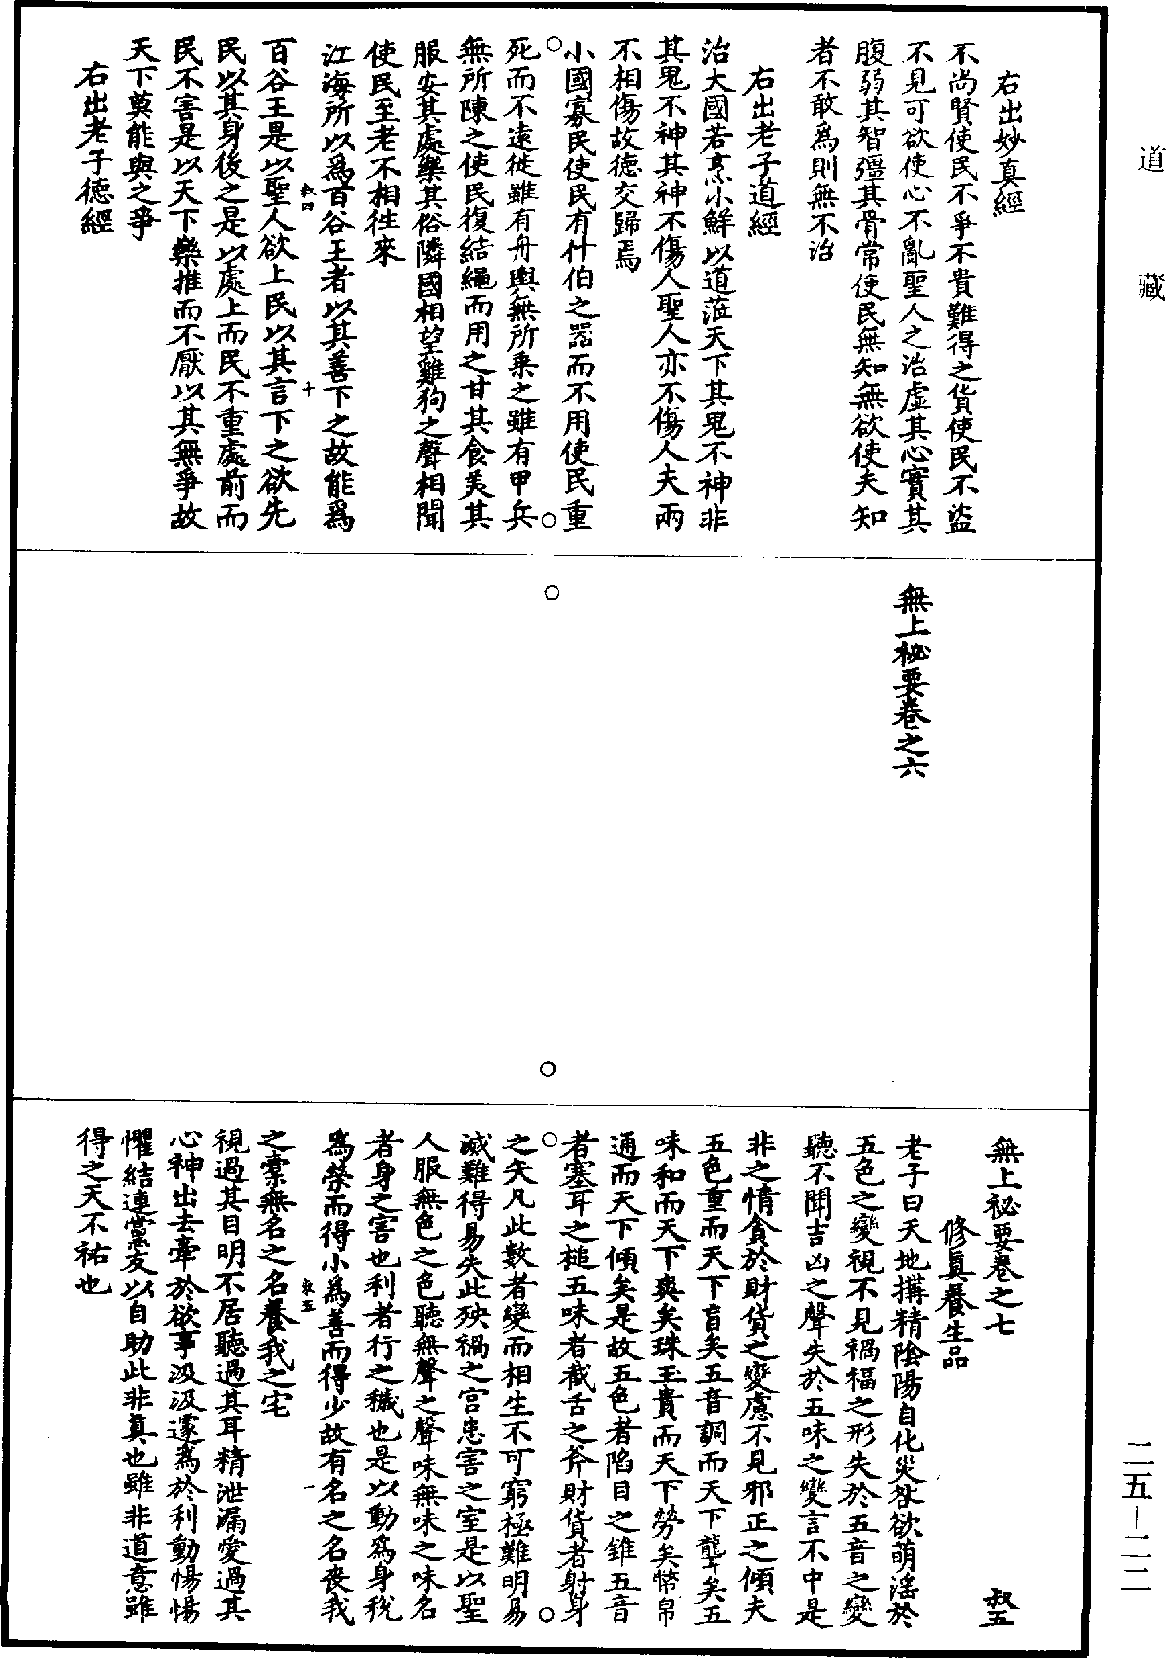 道藏
右出妙真經
不尚賢使民不爭不貴難得之貨使民不盜
不見可欲使心不亂聖人之治虛其心實其
腹弱其智彊其骨常使民無知無欲使夫知
者不敢為則無不治
右出老子道經
治大國若烹小鮮以道蒞天下其鬼不神非
其鬼不神其神不傷人聖人亦不傷人夫兩
不相傷故德交歸焉
小國寡民使民有什伯之器而不用使民重
死而不遠徙雖有舟輿無所乘之雖有甲兵
無所陳之使民復結繩而用之甘其食美其
服安其處樂其俗隣國相望雞狗之聲相聞
使民至老不相往來
江海所以爲百谷王者以其善下之故能爲
叔四 十
百谷王是以聖人欲上民以其言下之欲先
民以其身後之是以處上而民不重處前而
民不害是以天下樂推而不厭以其無爭故
天下莫能與之爭
右出老子德經
無上秘要卷之六
無上祕要卷之七 叔五
修真養生品
老子曰天地搆精陰陽自化災咎欲萌淫於
五色之變視不見禍福之形失於五音之變
聽不聞吉凶之聲失於五味之變言不中是
非之情貪於財貨之變慮不見邪正之傾夫
五色重而天下盲矣五音調而天下聾矣五
味和而天下爽矣珠玉貴而天下勞矣幣帛
通而天下傾矣是故五色者陷目之錐五音
者塞耳之槌五味者截舌之斧財貨者射身
之矢凡此數者變而相生不可窮極難明易
滅難得易失此殃禍之宮患害之室是以聖
人服無色之色聽無聲之聲味無味之味名
者身之害也利者行之穢也是以動爲身稅
爲榮而得小爲善而得少故有名之名喪我
叔五 一
之橐無名之名養我之宅
視過其目明不居聽過其耳精泄漏愛過其
心神出去牽於欲事汲汲遽爲於利動惕惕
懼結連黨友以自助此非真也雖非道意雖
得之天不祐也
二五－二二